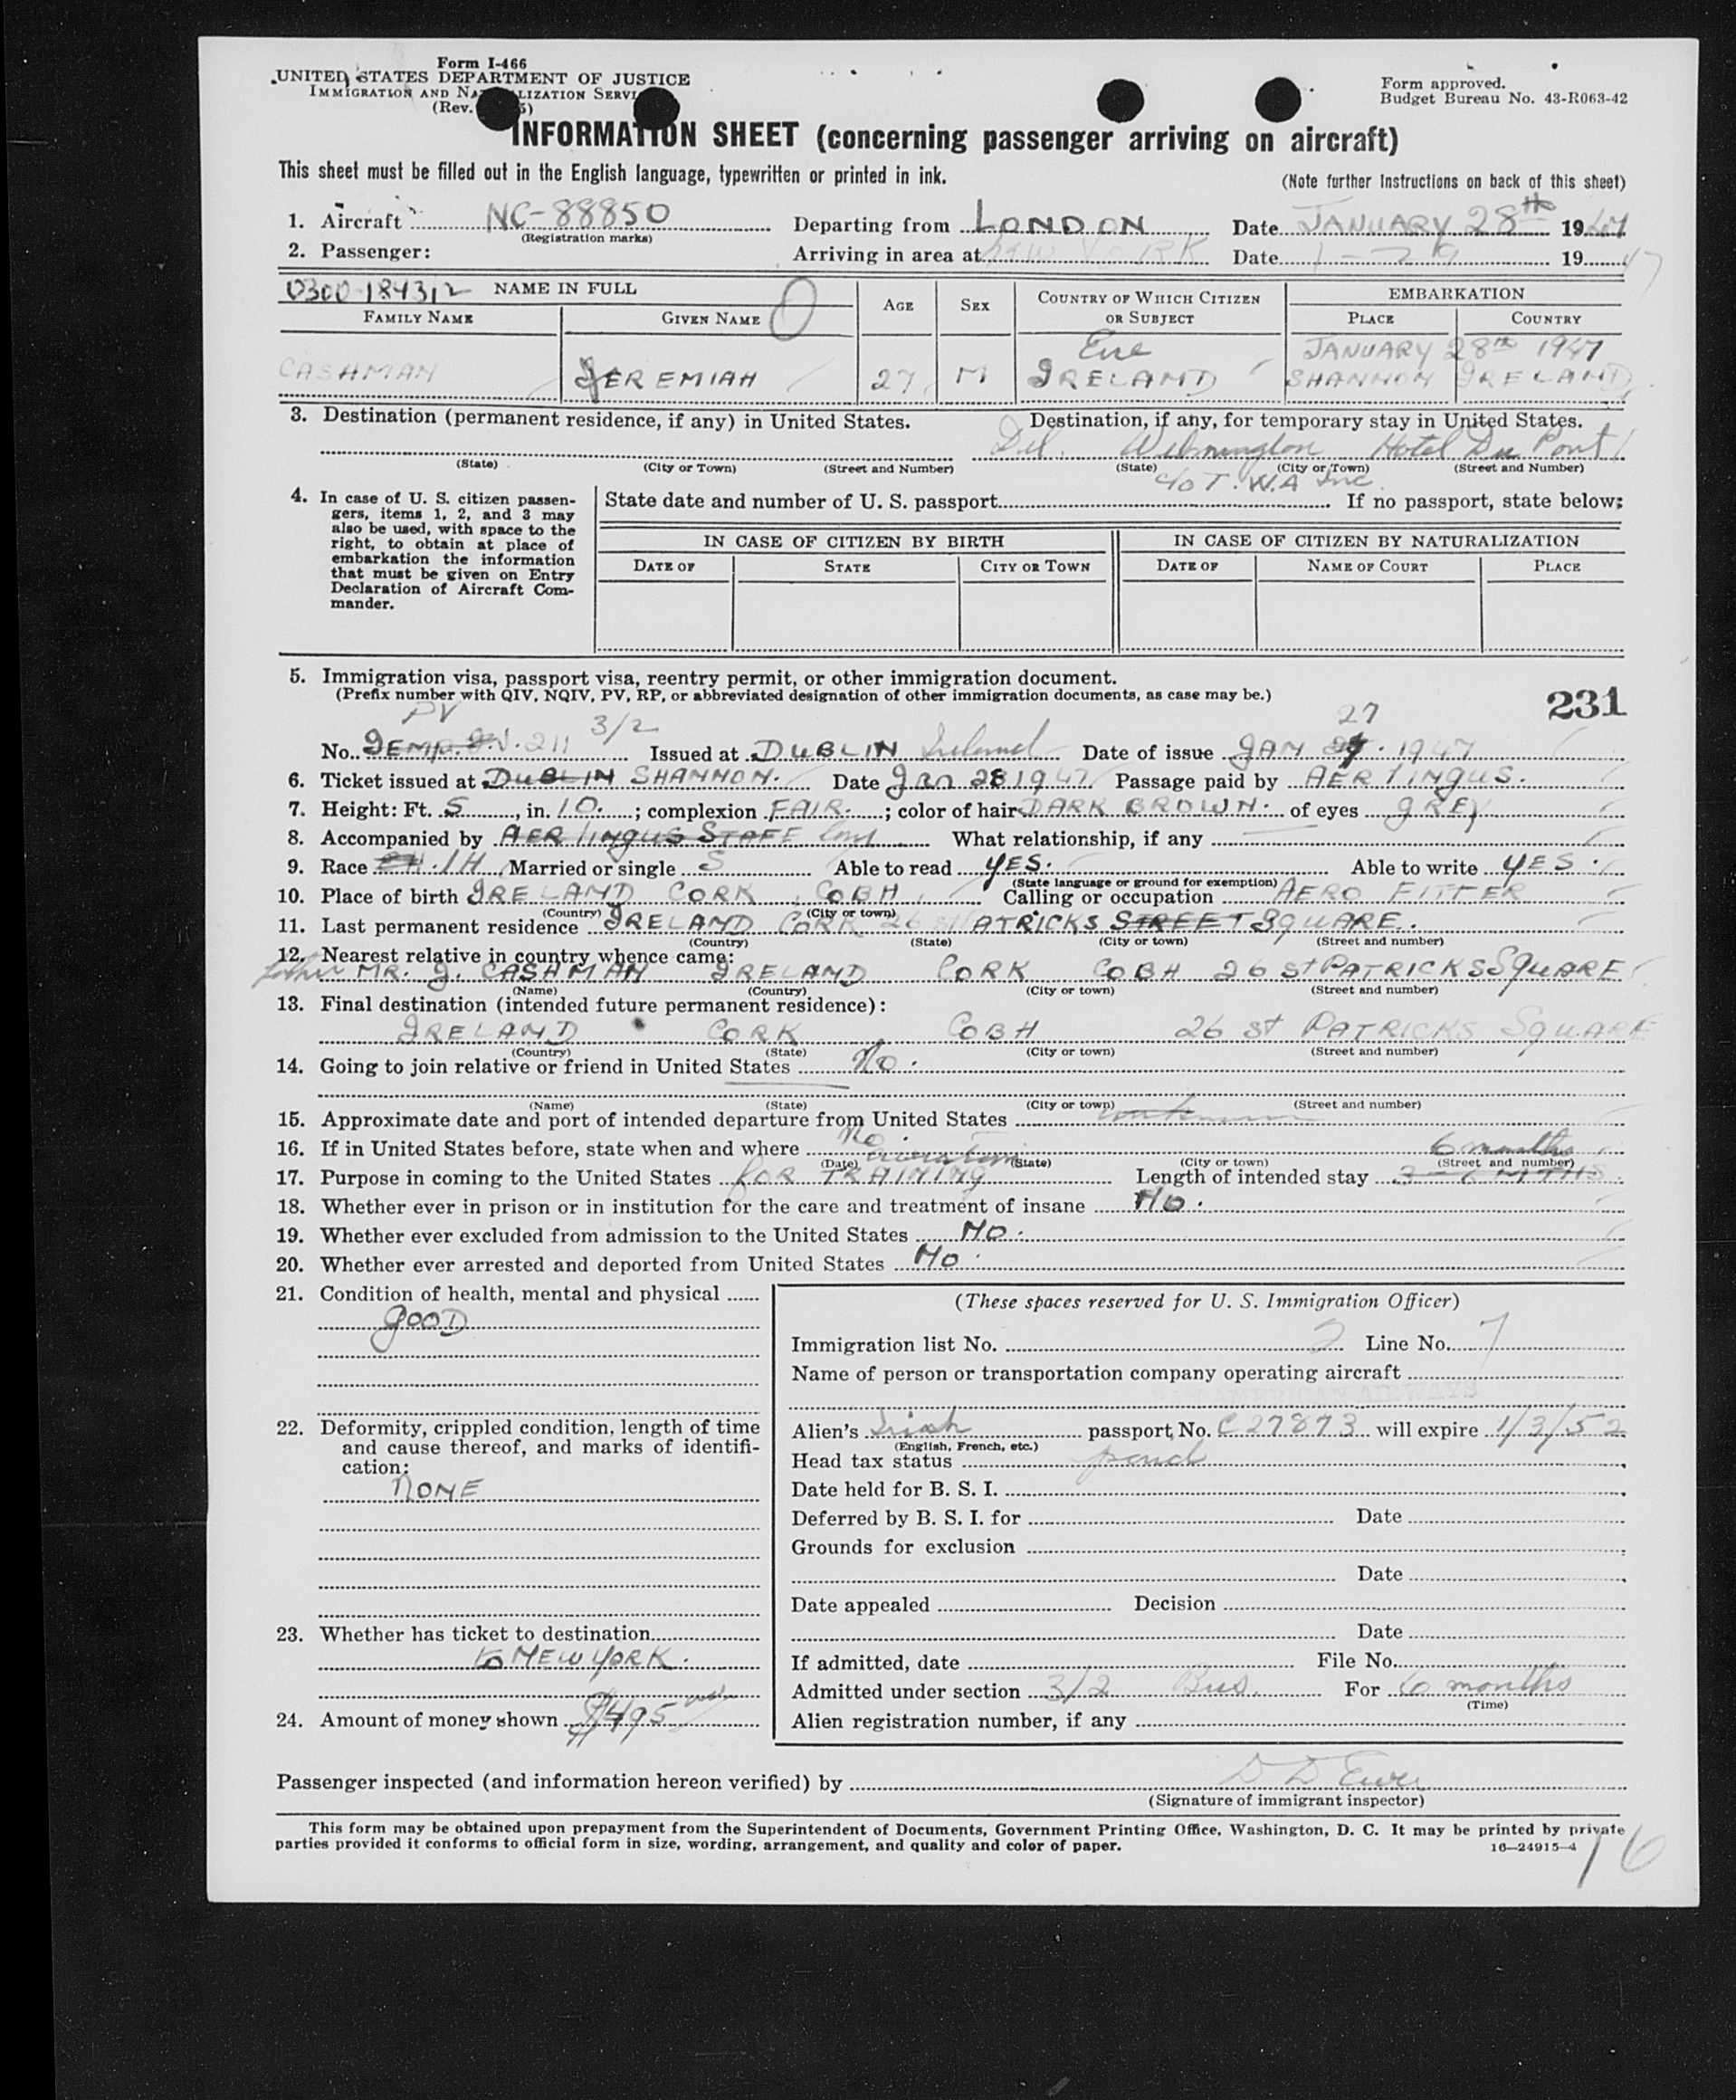 Form I-466
UNITED STATES DEPARTMENT OF JUSTICE
IMMIGRATION AND NATURALIZATION SERVICE
(Rev.
Form approved.
Budget Bureau No. 43-R063-42
INFORMATION SHEET (concerning passenger arriving on aircraft)
This sheet must be filled out in the English language, typewritten or printed in ink.
(Note further Instructions on back of this sheet)
1. Aircraft NC-88850 Departing from LONDON Date JANUARY 28th 1947
(Registration marks)
2. Passenger: Arriving in area at NEW YORK Date 1-29 1947
0300-184312 NAME IN FULL O AGE SEX COUNTRY OF WHICH CITIZEN OR SUBJECT EMBARKATION
FAMILY NAME GIVEN NAME PLACE COUNTRY
Eire JANUARY 28th 1947
CASHMAN JEREMIAH 27 M IRELAND SHANNON IRELAND
3. Destination (permanent residence, if any) in United States. Destination, if any, for temporary stay in United States.
Del. Wilmington Hotel Du Pont
(State) (City or Town) (Street and Number) (State) (City or Town) (Street and Number)
c/o T.W.A Inc.
4. In case of U. S. citizen passengers, items 1, 2, and 3 may also be used, with space to the right, to obtain at place of embarkation the information that must be given on Entry Declaration of Aircraft Commander.
State date and number of U. S. passport If no passport, state below:
IN CASE OF CITIZEN BY BIRTH IN CASE OF CITIZEN BY NATURALIZATION
DATE OF STATE CITY OR TOWN DATE OF NAME OF COURT PLACE
5. Immigration visa, passport visa, reentry permit, or other immigration document.
(Prefix number with QIV, NQIV, PV, RP, or abbreviated designation of other immigration documents, as case may be.)
231
PV 3/2 27
No. TEMP. 211 Issued at DUBLIN Ireland Date of issue JAN 1947
6. Ticket issued at DUBLIN SHANNON. Date Jan 28 1947 Passage paid by AER LINGUS.
7. Height: Ft. 5, in. 10.; complexion FAIR.; color of hair DARK BROWN. of eyes GREY
8. Accompanied by AER LINGUS STAFF What relationship, if any
9. Race IH Married or single S Able to read YES. Able to write YES.
(State language or ground for exemption)
10. Place of birth IRELAND CORK, COBH, Calling or occupation AERO FITTER
(Country) (City or town)
11. Last permanent residence IRELAND CORK 26 St PATRICKS STREET SQUARE.
(Country) (State) (City or town) (Street and number)
12. Nearest relative in country whence came:
father MR. J. CASHMAN IRELAND CORK COBH 26 St PATRICKS SQUARE
(Name) (Country) (City or town) (Street and number)
13. Final destination (intended future permanent residence):
IRELAND CORK COBH 26 St PATRICKS SQUARE
(Country) (State) (City or town) (Street and number)
14. Going to join relative or friend in United States No.
(Name) (State) (City or town) (Street and number)
15. Approximate date and port of intended departure from United States
16. If in United States before, state when and where No 6 months
(Date) (State) (City or town) (Street and number)
17. Purpose in coming to the United States FOR TRAINING Length of intended stay 3-6 MTHS
18. Whether ever in prison or in institution for the care and treatment of insane NO.
19. Whether ever excluded from admission to the United States NO.
20. Whether ever arrested and deported from United States NO.
21. Condition of health, mental and physical
GOOD
22. Deformity, crippled condition, length of time and cause thereof, and marks of identification:
NONE
23. Whether has ticket to destination
to NEW YORK.
24. Amount of money shown $495
(These spaces reserved for U. S. Immigration Officer)
Immigration list No. 2 Line No. 7
Name of person or transportation company operating aircraft
Alien's Irish passport No. C27873 will expire 1/3/52
(English, French, etc.)
Head tax status
Date held for B. S. I.
Deferred by B. S. I. for Date
Grounds for exclusion
Date
Date appealed Decision
Date
If admitted, date File No.
Admitted under section 3/2 Bus. For 6 months
(Time)
Alien registration number, if any
Passenger inspected (and information hereon verified) by
(Signature of immigrant inspector)
This form may be obtained upon prepayment from the Superintendent of Documents, Government Printing Office, Washington, D. C. It may be printed by private
parties provided it conforms to official form in size, wording, arrangement, and quality and color of paper.
16—24915-4
16